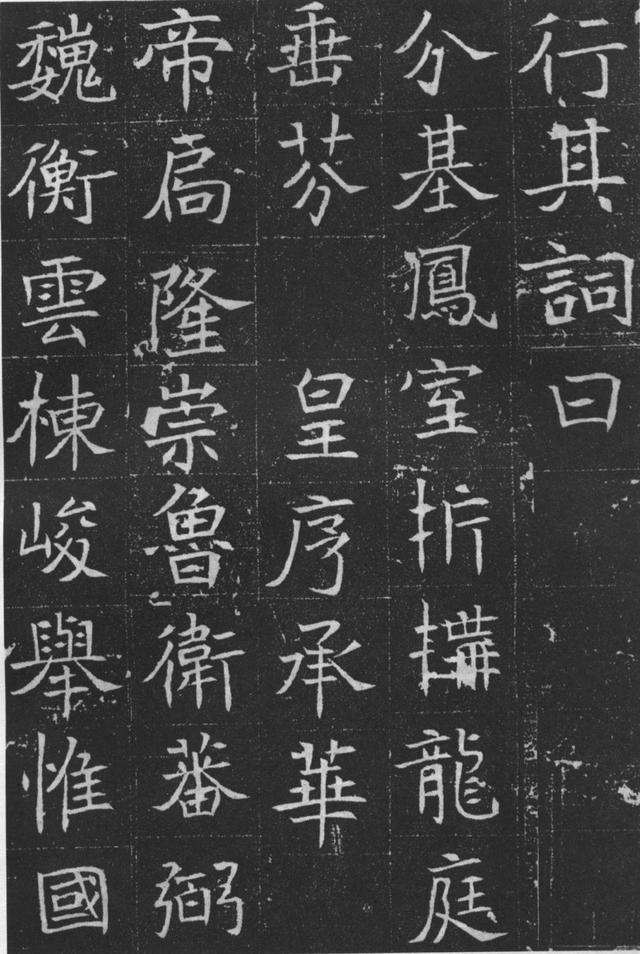 行其詞曰
分基鳳室扸搆龍庭
垂芬 皇序承華
帝扃隆崇魯衛蕃弼
魏衡雲棟峻舉惟國